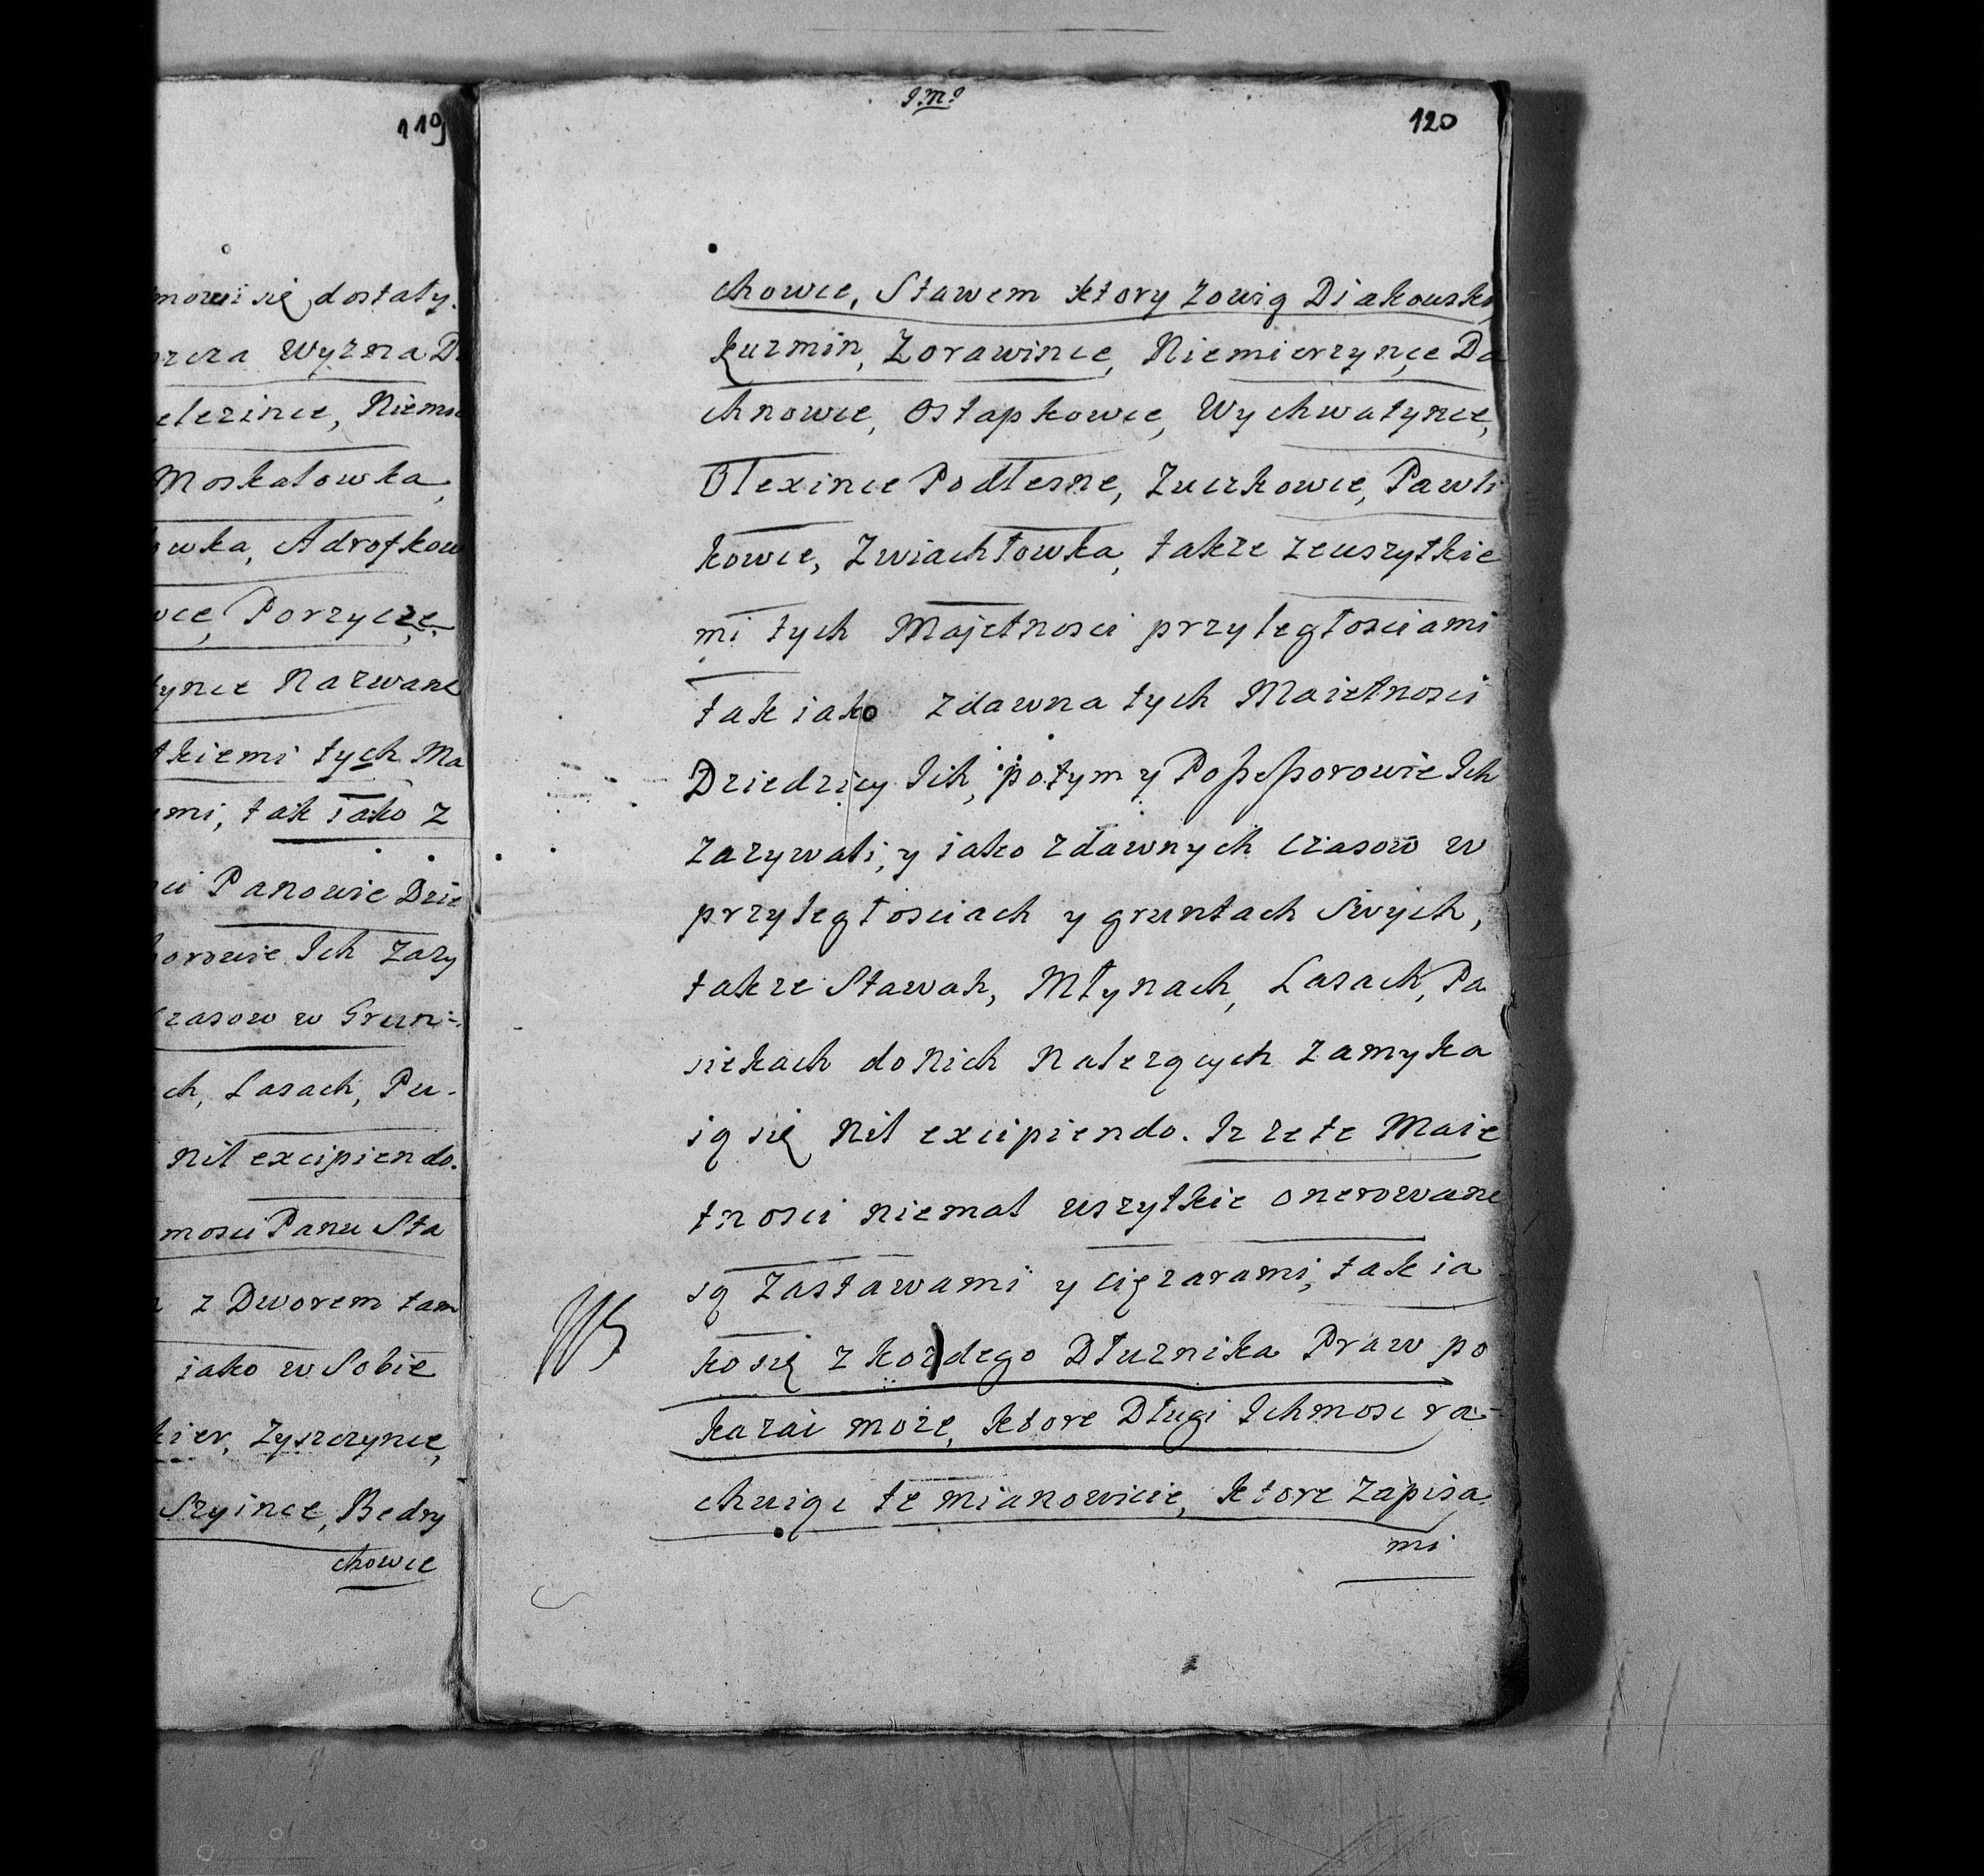 119
mowi się dostały.
Wyzna
elezince,
Moskalowka,
owka,
Porzycze,
Nazwane
kiemi tych Ma
mi, tak iako z
Panowie Dzie
Ich Zazy
czasow w Grun=
ch, Lasach, Pu-
Nil excipiendo.
mosci Panu Sta
z Dworem tam
iako w Sobie
Zyszczynce,
Szyince, Bedry
chowce
120
chowce, Stawem ktory zowią Diakowski,
Kuzmin, Zorawince, Niemierzynce Da
chnowce, Ostapkowce, Wychwatynce,
Olexince Podlesne, Zuczkowce, Pawli
kowce, Zwiachlowka, takze zewszytkie
mi tych Majetnosci przyległosciami
tak iako zdawna tych Maietnosci
Dziedzicy Ich, potym y Possessorowie Ich
zazywali, y iako zdawnych czasow w
przyległosciach y gruntach Swych,
takze Stawah, Młynach, Lasach, Pa
siekach do Nich Nalezących zamyka
ią się Nil excipiendo. Iz ze te Maie
tnosci niemal wszytkie onerowane
są Zastawami y cięzarami, tak ia
ko się z kozdego Dłuznika Praw po
kazac moze, ktore Długi Ichmosc ra-
chuiąc te mianowicie, ktore Zapisa
mi